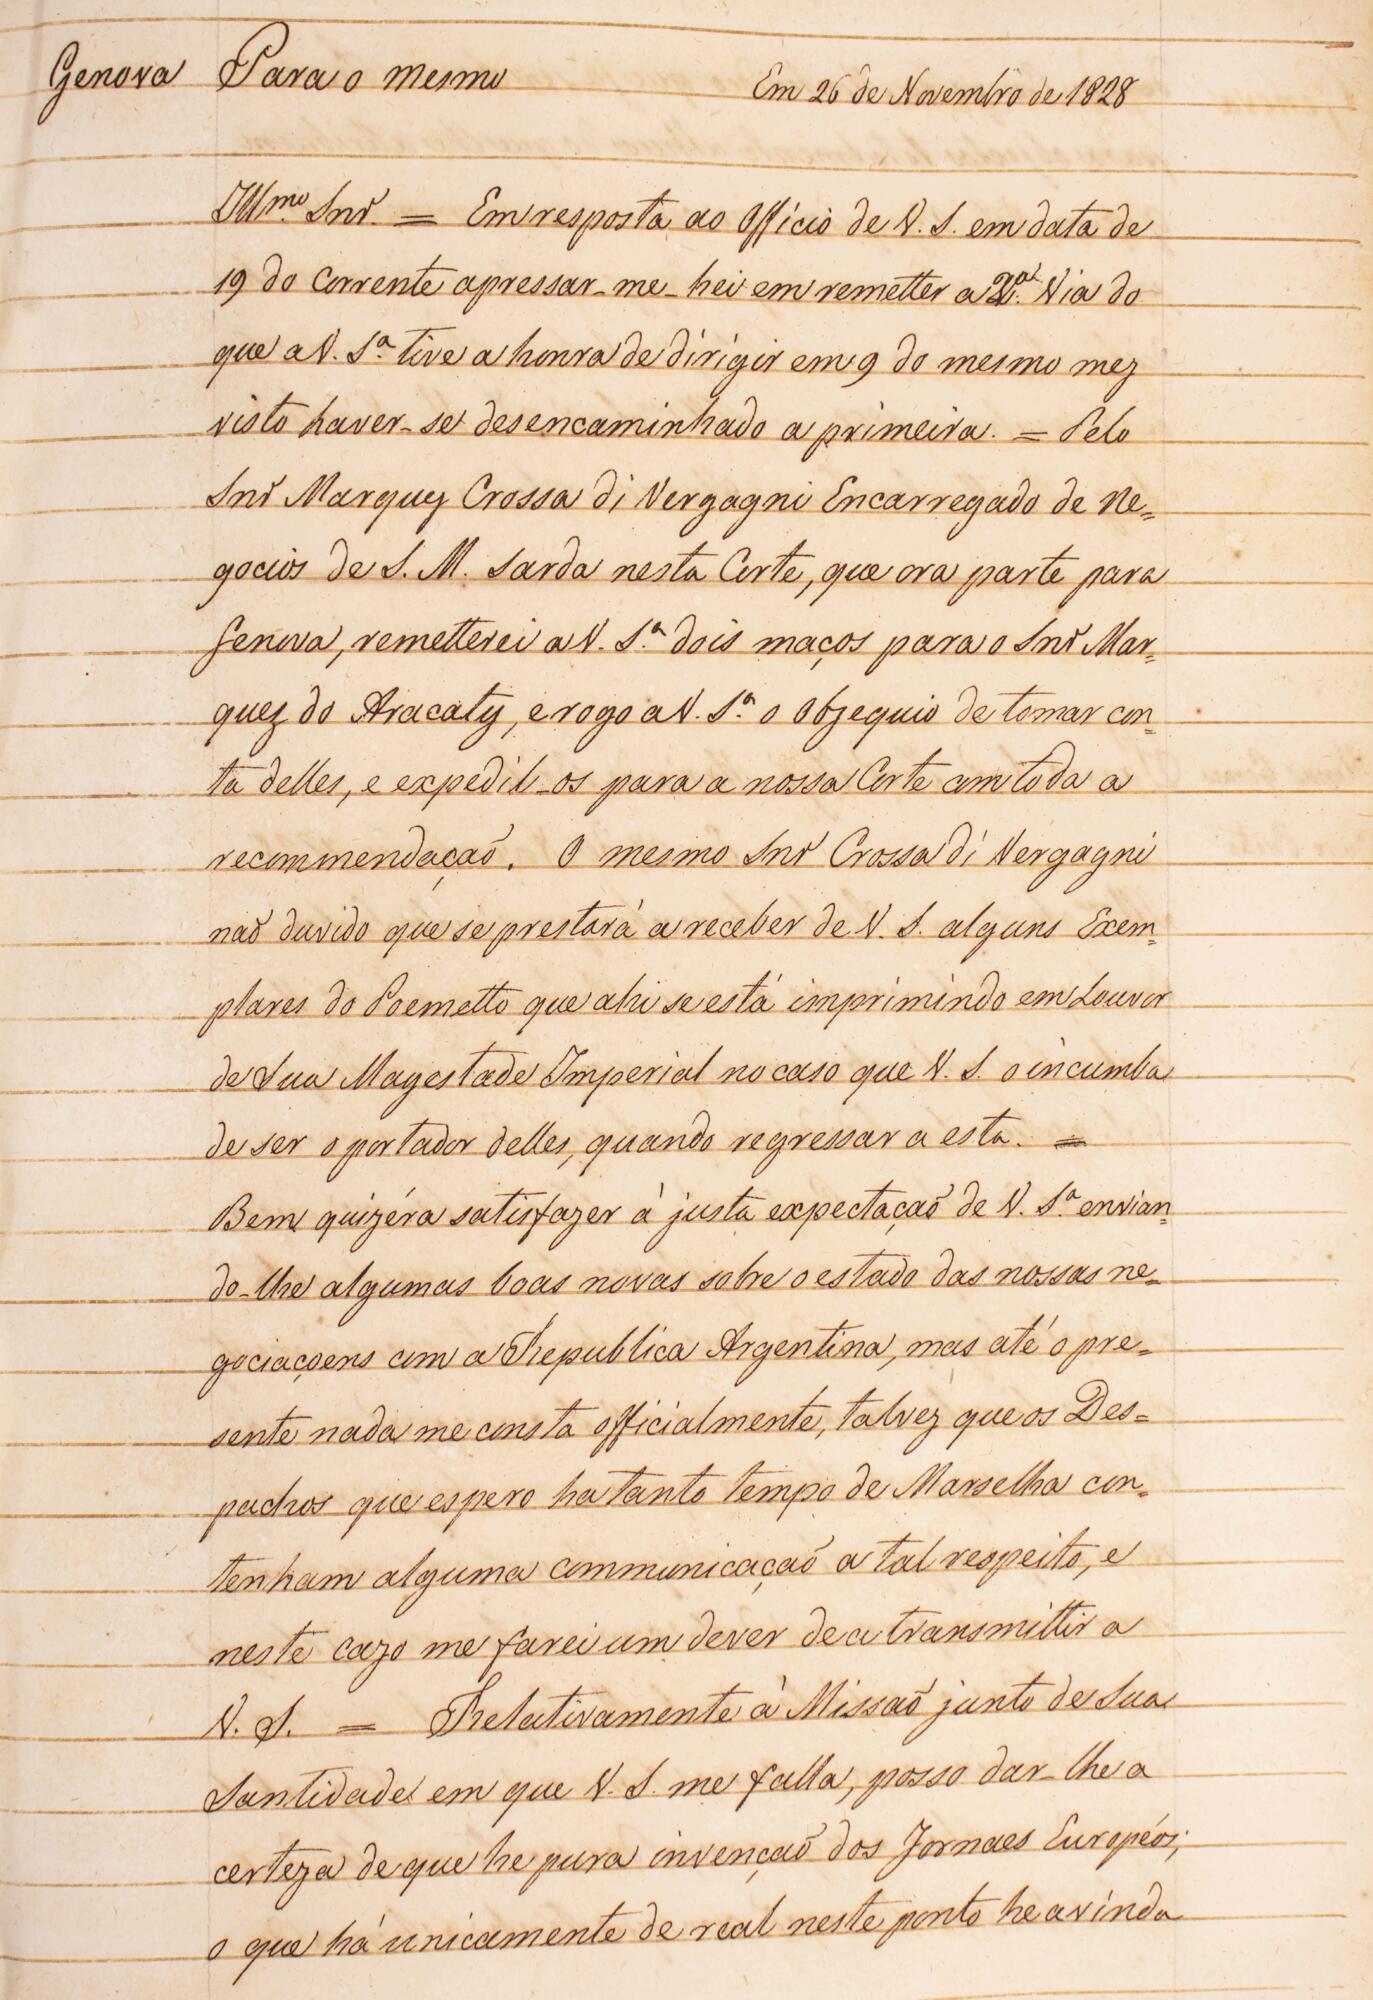 Genova Para o mesmo Em 26 de Novembro de 1828
Illmo. Snr. = Em resposta ao Officio de V. S. em data de
19 do corrente apressar-me-hei em remetter a 2.a Via do
que a V. S.a tive a honra de dirigir em 9 do mesmo mez
visto haver-se desencaminhado a primeira. = Pelo
Snr Marquez Crossa di Vergagni Encarregado de Ne=
gocios de S. M. Sarda nesta Corte, que ora parte para
Genova, remetterei a V. S.a dois maços para o Snr Mar=
quez do Aracaty, e rogo a V. S.a o obzequio de tomar con=
ta delles, e expedil-os para a nossa Corte com toda a
recommendaçaõ. O mesmo Snr Crossa di Vergagni
naõ duvido que se prestará a receber de V. S. alguns Exem=
plares do Poemetto que ahi se está imprimindo em Louvor
de Sua Magestade Imperial no caso que V. S. o incumba
de ser o portador delles, quando regressar a esta. =
Bem quizéra satisfazer á justa expectaçaõ de V. S.a envian=
do-lhe algumas boas novas sobre o estado das nossas ne=
gociaçoens com a Republica Argentina, mas até o pre=
sente nada me consta officialmente, talvez que os Des=
pachos que espero ha tanto tempo de Marselha con=
tenham alguma communicaçaõ a tal respeito, e
neste cazo me farei um dever de a transmittir a
V. S. = Relativamente à Missaõ junto de Sua
Santidade em que V. S. me falla, posso dar-lhe a
certeza de que he pura invençaõ dos Jornaes Européos;
o que há unicamente de real neste ponto he a vinda